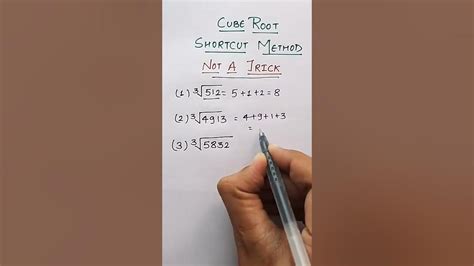 CUBE ROOT
SHORTCUT METHOD
NOT A TRICK
(1) ∛512 = 5+1+2=8
(2) ∛4913 = 4+9+1+3
=
(3) ∛5832